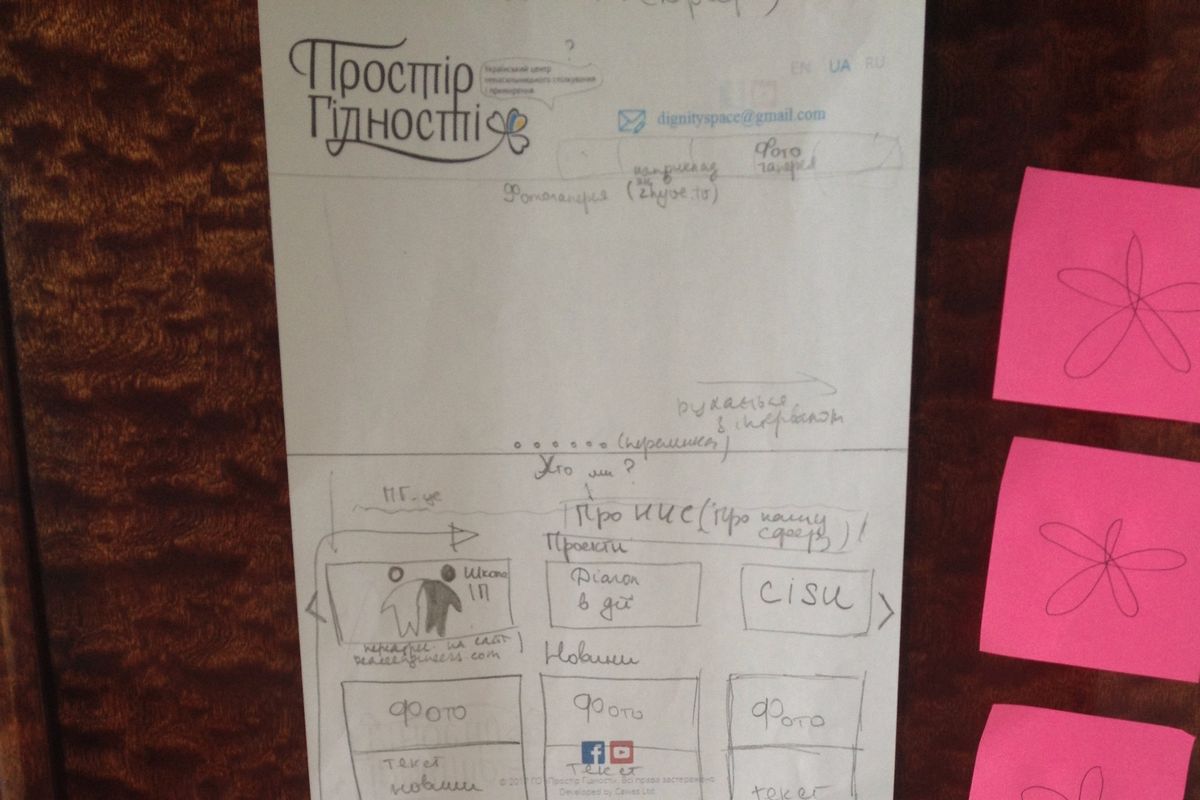 Простір
Гідності
?
Український центр
ненасильницького спілкування
і примирення
EN UA RU
dignityspace@gmail.com
Фото
галерея
наприклад
як
Фотогалерея (zhyve.to)
рухається
з інтервалом
(перемикач)
Хто ми?
ПГ-це
Про ННС (про нашу
сферу)
Проекти
Школа
ІП
Діалог
в дії
CISU
на сайт)
Новини
Фото
Фото
Фото
текст
новини
текст
текст
© 2017 ГО «Простір Гідності». Всі права застережено
Developed by Ltd.